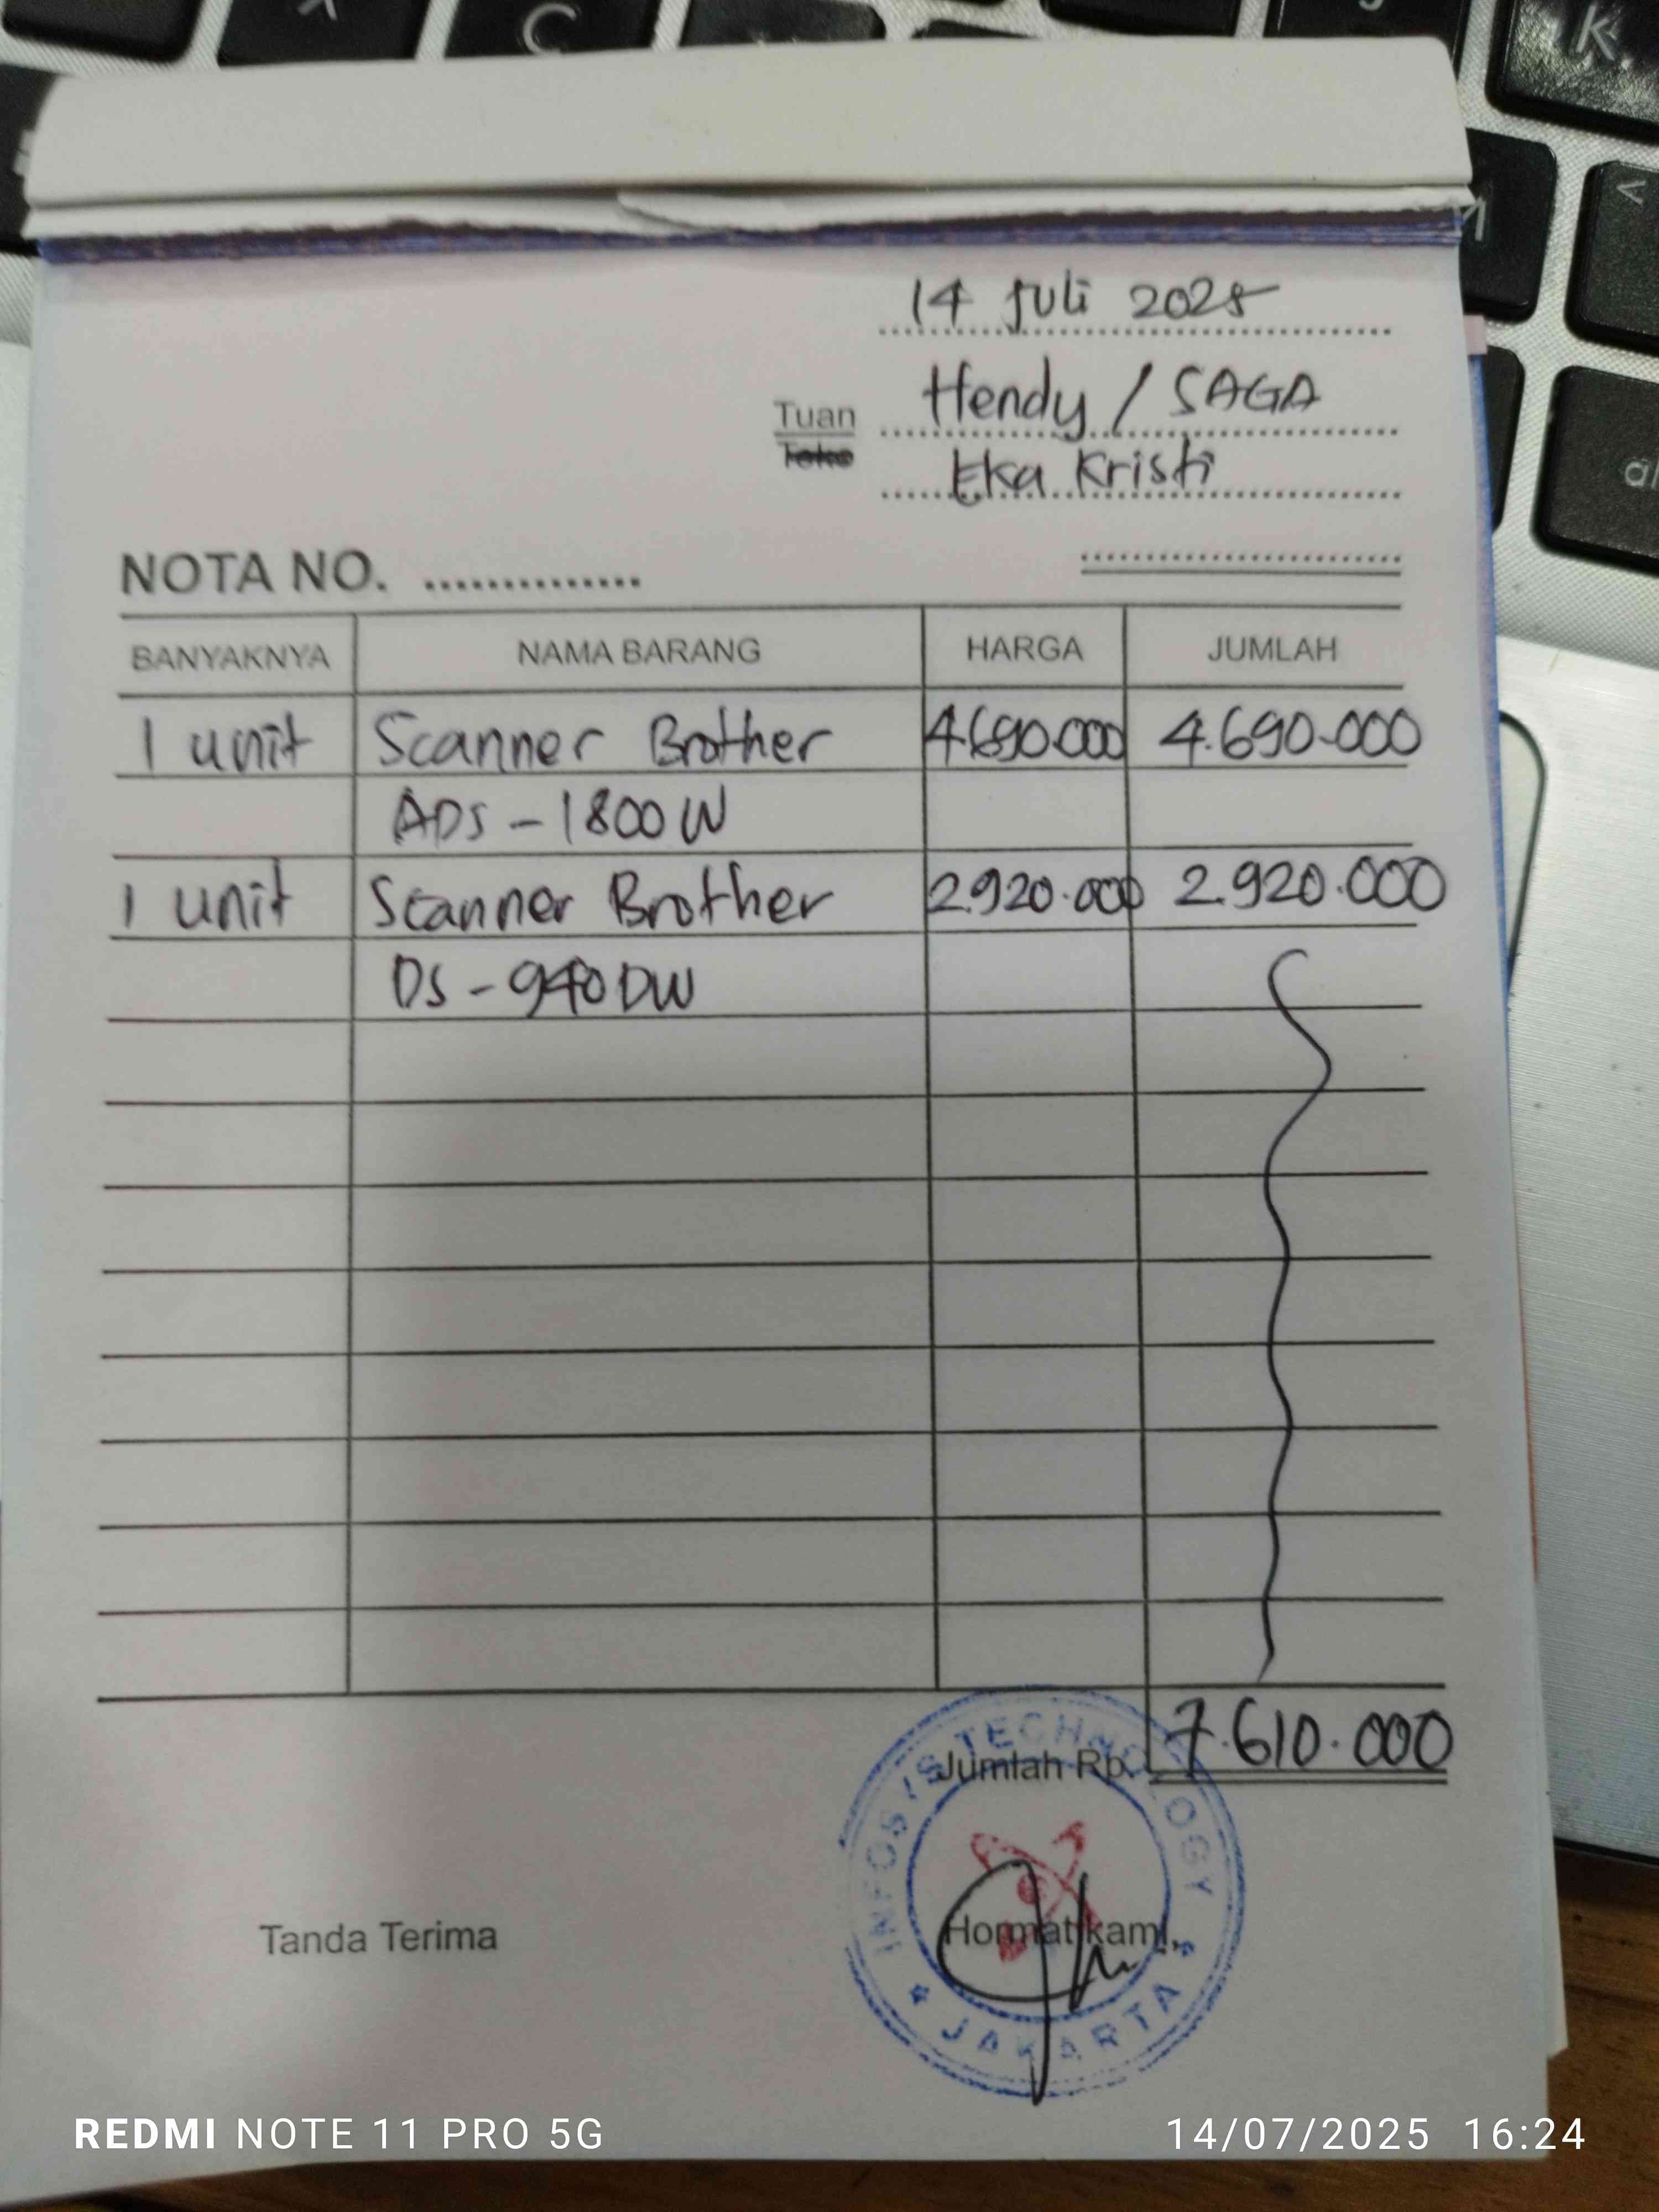 14 Juli 2025
Tuan Hendy / SAGA
Toko Eka Kristi
NOTA NO. ..............
BANYAKNYA NAMA BARANG HARGA JUMLAH
1 unit Scanner Brother 4.690.000 4.690.000
ADS - 1800 W
1 unit Scanner Brother 2.920.000 2.920.000
DS - 940 DW
Jumlah Rp. 7.610.000
Tanda Terima Hormat kami,
INFOSYS TECHNOLOGY
JAKARTA
REDMI NOTE 11 PRO 5G 14/07/2025 16:24